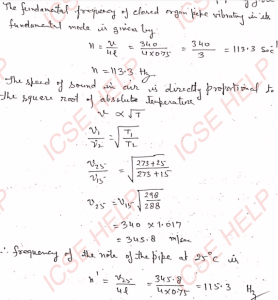 The fundamental frequency of closed organ pipe vibrating in its
fundamental mode is given by
n = v/4l = 340/4×0.75 = 340/3 = 113.3 sec⁻¹
n = 113.3 Hz
The speed of sound in air is directly proportional to
the square root of absolute temperature
v ∝ √T
v₁/v₂ = √T₁/T₂
v₂₅/v₁₅ = √273+25/273+15
v₂₅ = v₁₅ √298/288
= 340 × 1.017
= 345.8 m/sec
∴ frequency of the note of the pipe at 25°C is
n' = v₂₅/4l = 345.8/4×0.75 = 115.3 Hz
ICSE HELP
ICSE HELP
ICSE HELP
ICSE HELP
ICSE HELP
ICSE HELP